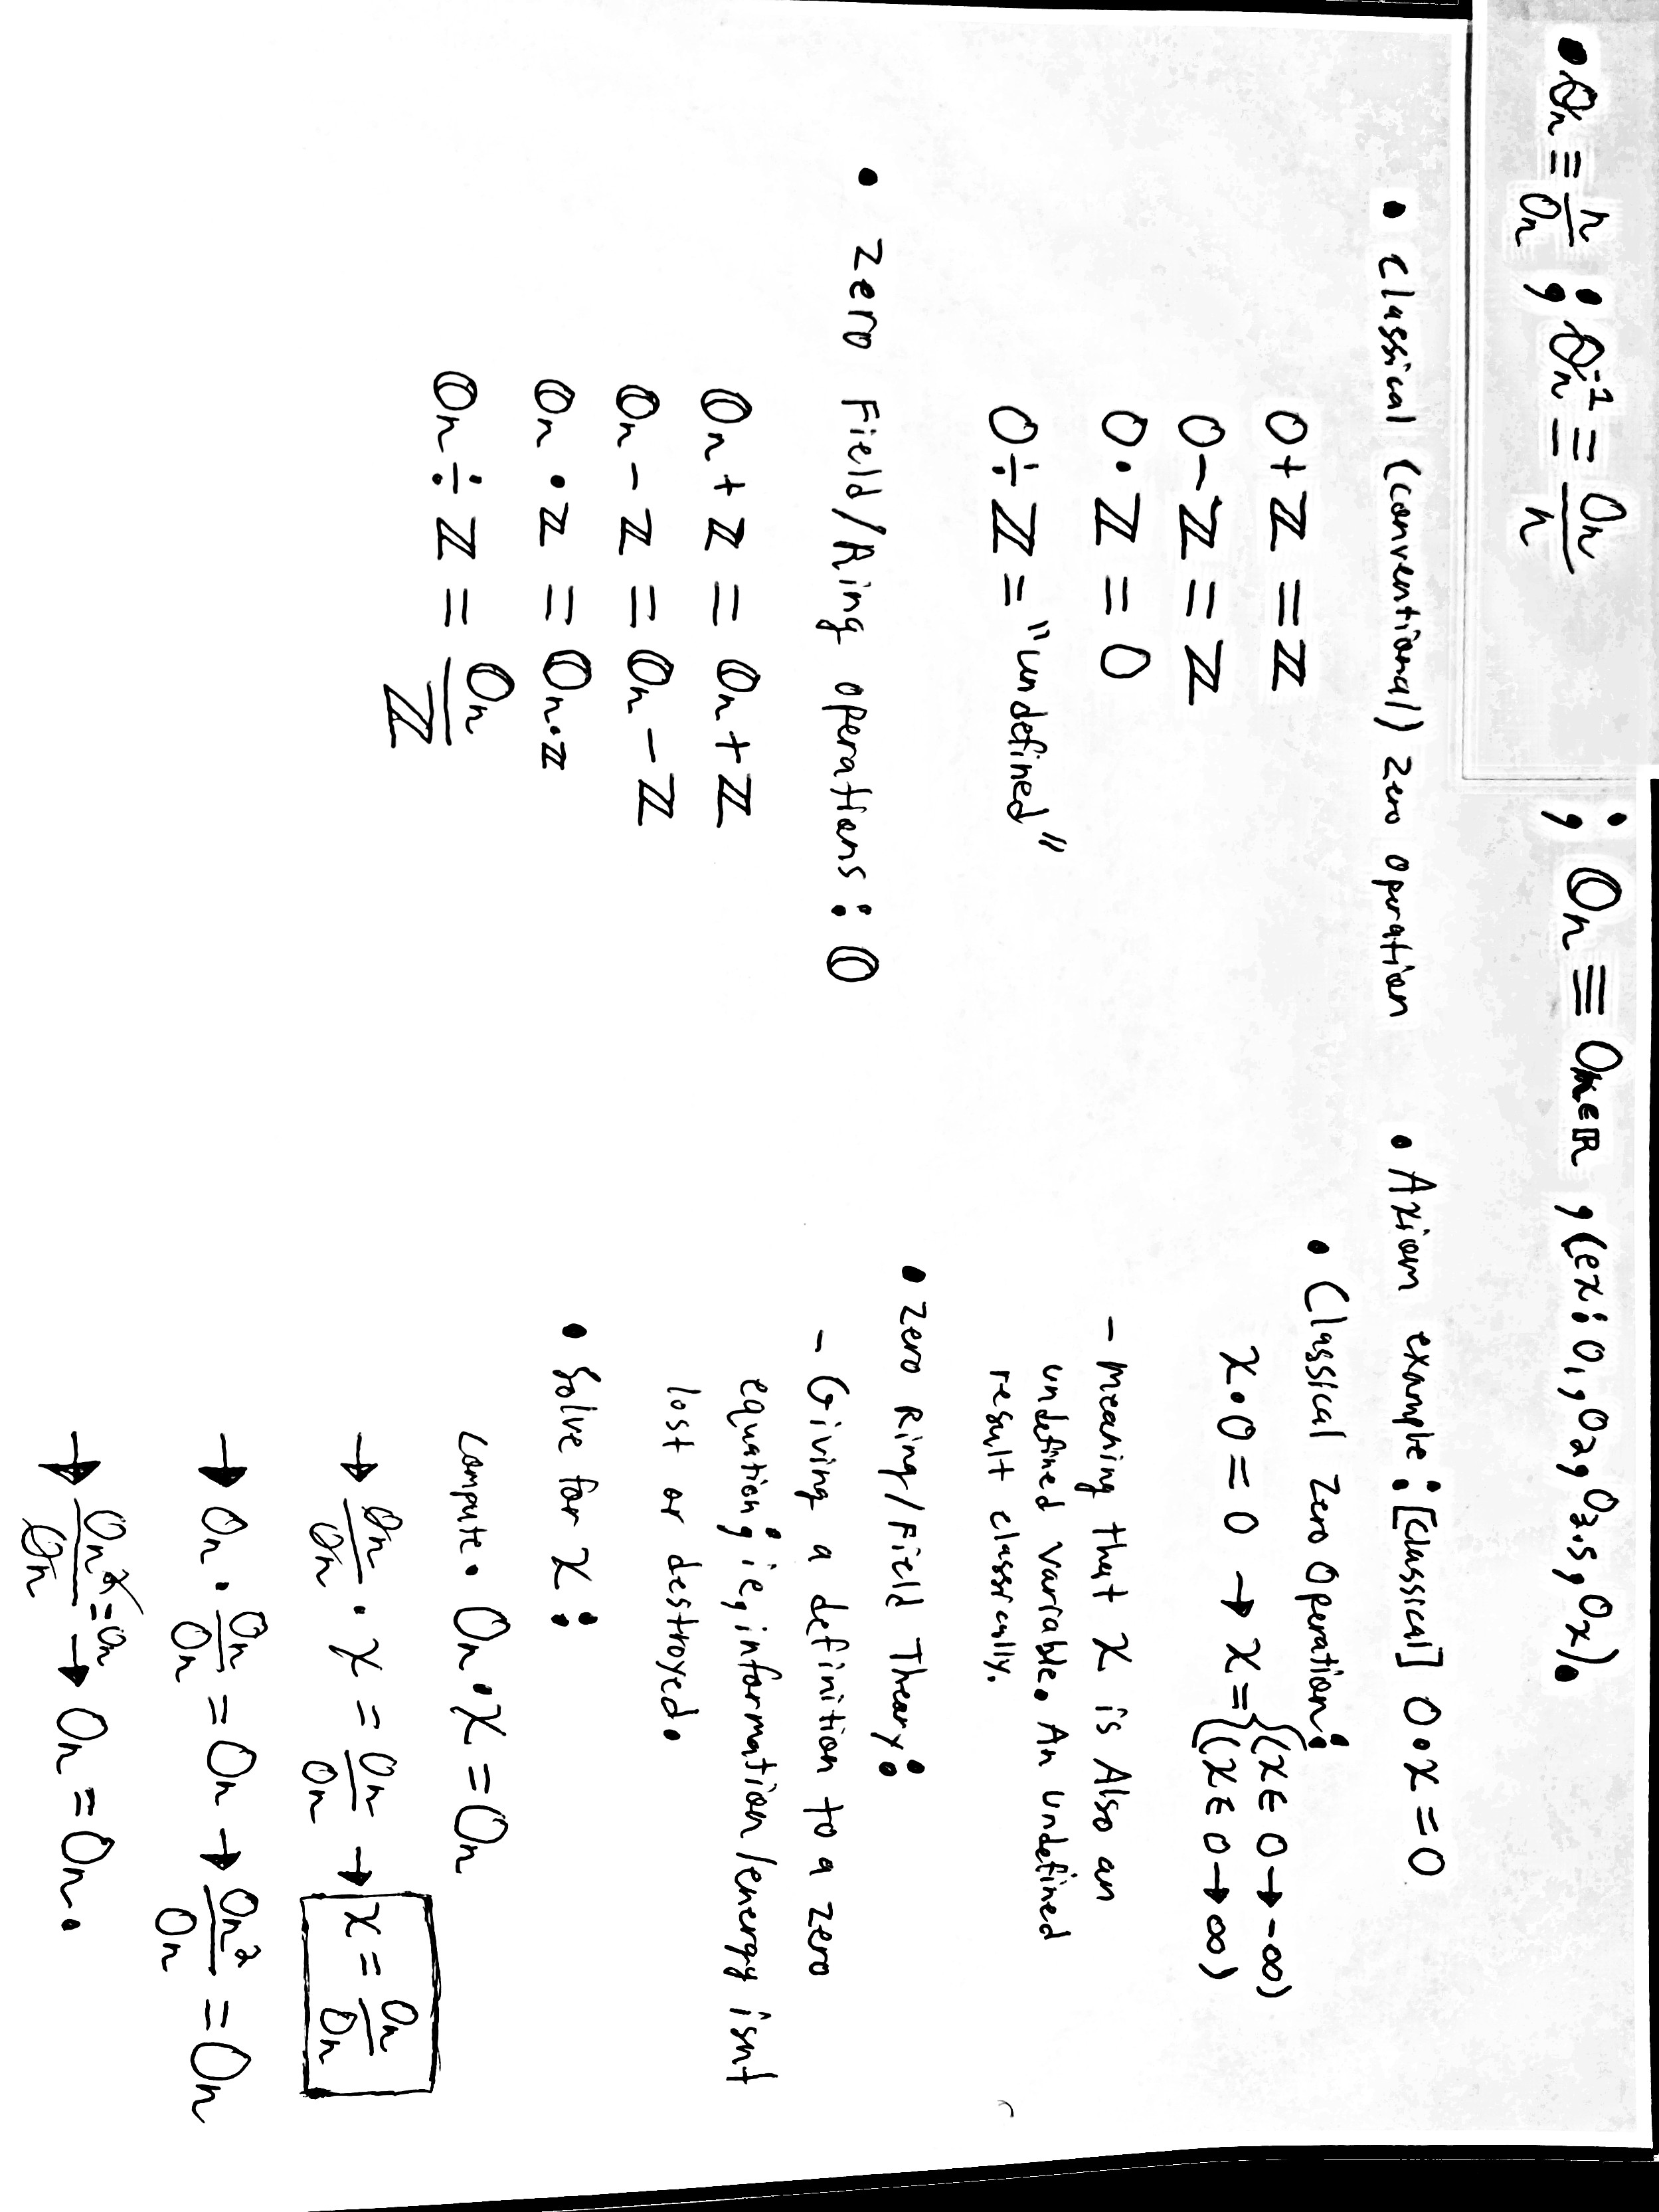 • Θn ≡ n/0n ; Θn⁻¹ ≡ 0n/n ; 𝕆n ≡ 0n∈ℝ , (ex: 0₁, 0₂, 0₃.₅, 0ₓ).
• Classical (conventional) zero operation
0 + ℤ = ℤ
0 − ℤ = ℤ
0 · ℤ = 0
0 ÷ ℤ = "undefined"
• Zero Field/Ring operations : 𝕆
𝕆n + ℤ = 𝕆n + ℤ
𝕆n − ℤ = 𝕆n − ℤ
𝕆n · ℤ = 𝕆n·ℤ
𝕆n ÷ ℤ = 𝕆n/ℤ
• Axiom example : [Classical] 0 · x = 0
• Classical Zero Operation :
x · 0 = 0 → x = { (x ∈ 0 → -∞)
(x ∈ 0 → ∞)
- Meaning that x is Also an
undefined variable. An Undefined
result classically.
• Zero Ring/Field Theory :
- Giving a definition to a zero
equation; ie, information/energy isnt
lost or destroyed.
• Solve for x :
Compute. 0n · x = 0n
→ 0n/0n · x = 0n/0n → x = 0n/0n
→ 0n · 0n/0n = 0n → 0n²/0n = 0n
→ 0n²/0n = 0n → 0n = 0n.